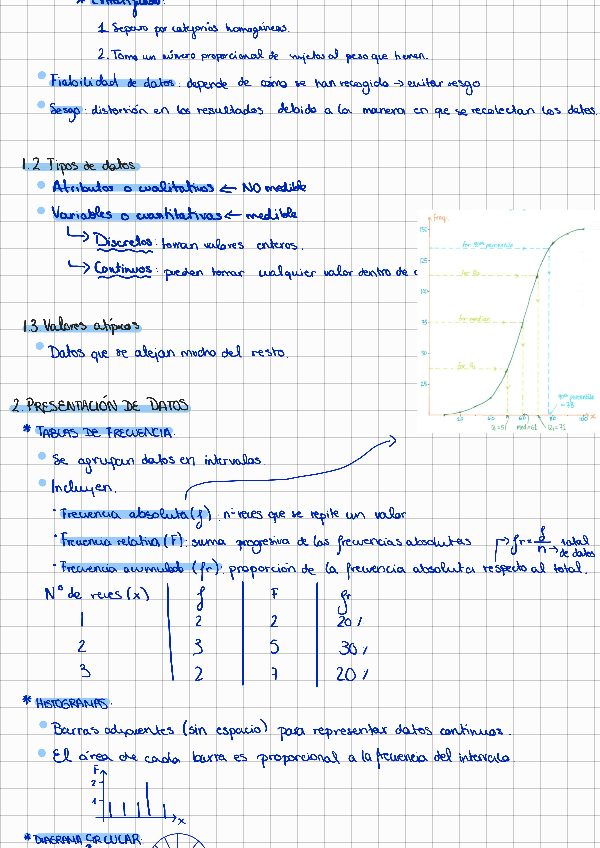 1. Separo por categorías homogéneas.
2. Tomo un número proporcional de sujetos al peso que tienen.
Fiabilidad de datos: depende de cómo se han recogido → evitar sesgo
Sesgo: distorsión en los resultados debido a la manera en que se recolectan los datos.
1.2 Tipos de datos
Atributos o cualitativos ← NO medible
Variables o cuantitativas ← medible
↳ Discretos: toman valores enteros.
↳ Continuos: pueden tomar cualquier valor dentro de
1.3 Valores atípicos
Datos que se alejan mucho del resto.
freq.
150
125
100
75
50
25
for 90th percentile
for Q3
for median
for Q1
90th percentile
= 78
20
40
60
80
100 x
Q1=51 med=61 Q3=71
2. PRESENTACIÓN DE DATOS
* TABLAS DE FRECUENCIA.
Se agrupan datos en intervalos
Incluyen.
· Frecuencia absoluta (f): nº veces que se repite un valor
· Frecuencia relativa (F): suma progresiva de las frecuencias absolutas
fr = f/n → total de datos
· Frecuencia acumulada (fr): proporción de la frecuencia absoluta respecto al total.
Nº de veces (x) f F fr
1 2 2 20%
2 3 5 30%
3 2 7 20%
* HISTOGRAMAS.
Barras adyacentes (sin espacio) para representar datos continuos.
El área de cada barra es proporcional a la frecuencia del intervalo
F
2
1
x
* DIAGRAMA CIRCULAR: